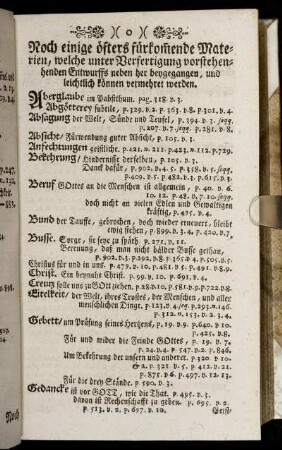 ( o )
Noch einige öfters fürkom̃ende Mate-
rien, welche unter Verfertigung vorstehen-
henden Entwurffs neben her beygegangen, und
leichtlich können vermehret werden.
Aberglaube im Pabstthum. pag. 318 v. 3.
Abgötterey subtile, p. 329. v. 2. p. 363. v. 8. p. 301. v. 4.
Absagung der Welt, Sünde und Teufel, p. 394. v. 3. seqq.
p. 207. v. 7. seqq. p. 281. v. 8.
Absicht, Fürwendung guter Absicht, p. 105. v. 3.
Anfechtungen geistliche. p. 421. v. 211. p. 423. v. 112. p. 729.
Bekehrung, Hindernisse derselben, p. 105. v. 3.
Danck dafür, p. 902. v. 4. 5. p. 358. v. 5. seqq.
p. 409. v. 5. p. 482. v. 3. p. 615. v. 3.
Beruf GOttes an die Menschen ist allgemein, p. 40. v. 6.
10. 12. p. 48. v. 7. 10. seqq.
doch nicht an vielen Edlen und Gewaltigen
kräftig, p. 475. v. 4.
Bund der Tauffe, gebrochen, doch wieder erneuert, bleibt
ewig stehen, p. 899. v. 3. 4. p. 420. v. 7.
Busse. Sorge, sie seye zu späth. p. 271. v. 12.
Bereuung, daß man nicht bälder Busse gethan,
p. 902. v. 3. p. 292. v. 8. p. 365. v. 3. p. 505. v. 5.
Christus für und in uns. p. 477. v. 10. p. 481. v. 5. p. 491. v. 8. 9.
Christ. Ein beynahe Christ. p. 99. v. 10. p. 691. v. 4.
Creutz solle uns zu GOtt ziehen. p. 28. v. 10. p. 581. v. 9. p. 722. v. 8.
Eitelkeit, der Welt, ihres Trostes, der Menschen, und aller
menschlichen Dinge. p. 123. v. 4. seq. p. 293. v. 146.
p. 312. v. 153. v. 2. 3. 4.
Gebett, um Prüfung seines Hertzens, p. 19. v. 9. p. 640. v. 10.
p. 425. v. 8.
Für und wider die Feinde GOttes. p. 19. v. 7.
p. 24. v. 4. p. 547. v. 2. p. 846.
Um Bekehrung der unsern und anderer. p. 320 v. 10
& 2. p. 321. v. 5. p. 412. v. 21.
p. 875. v. 6. p. 497. v. 12. 13.
Für die drey Stände. p. 590. v. 3.
Gedancke ist vor GOTT, wie die That. p. 495. v. 3.
davon ist Rechenschafft zu geben. p. 695. v. 2
p. 513. v. 2. p. 697. v. 10.
Geist-
Noch